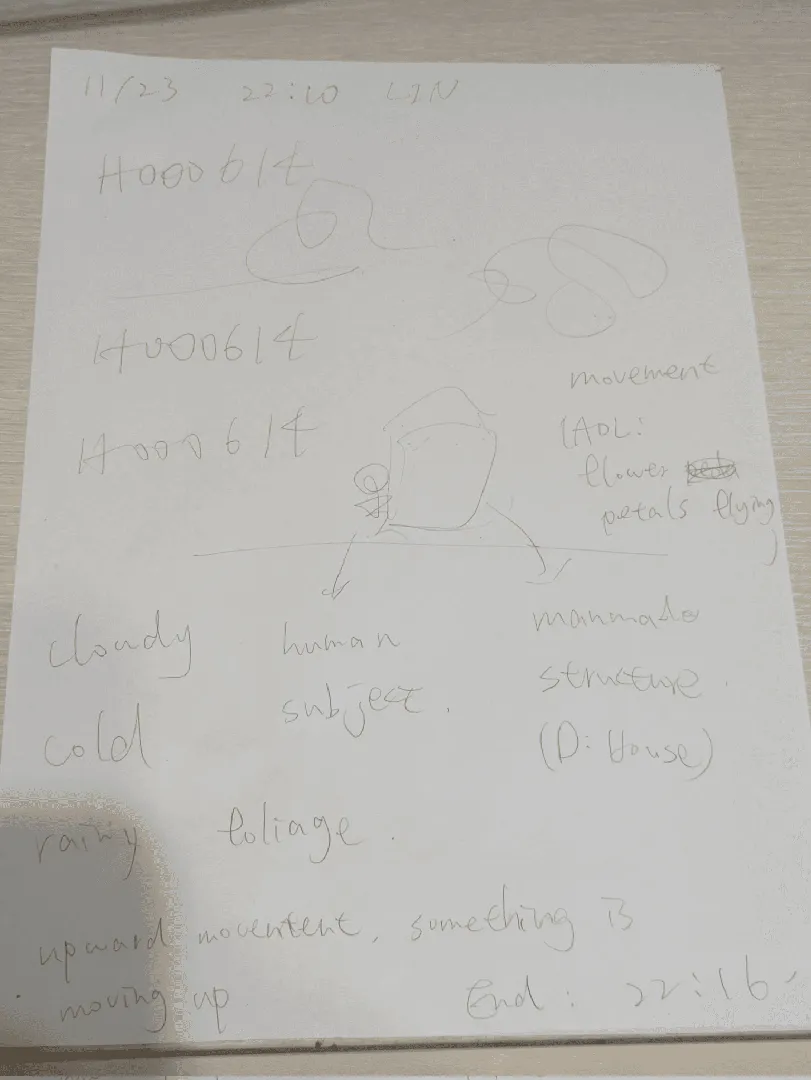 11/23 22:10 LIN
H000614
H000614
H000614
movement
(AOL:
flower
petals flying
)
cloudy
human
subject.
manmade
structure.
(D: House)
cold
rainy
foliage.
upward movement, something is
moving up
End: 22:16